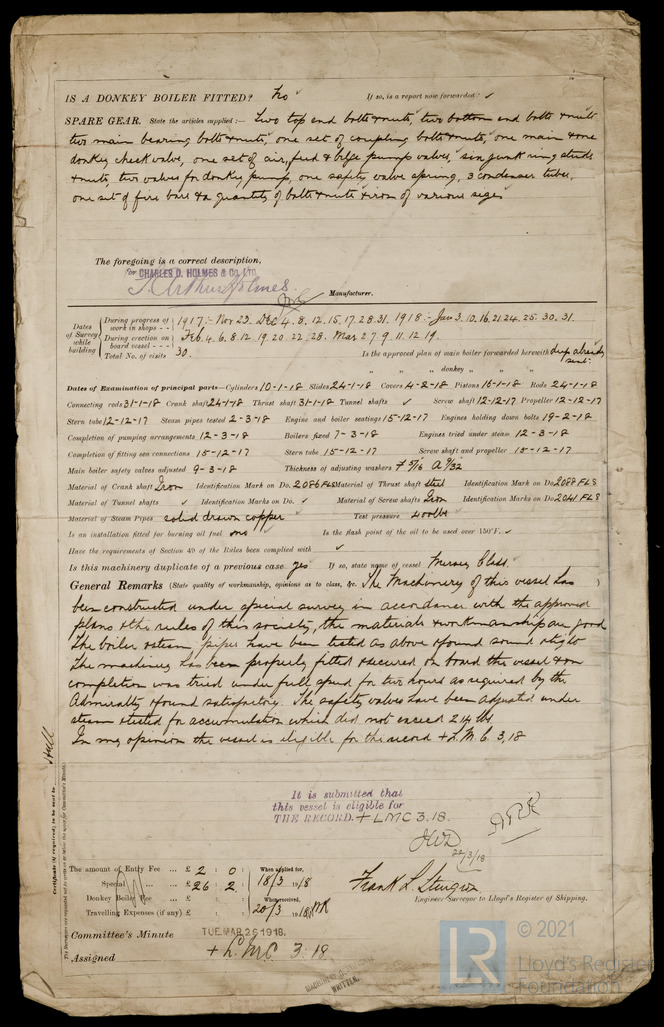 IS A DONKEY BOILER FITTED? No If so, is a report now forwarded? ✓
SPARE GEAR. State the articles supplied:— Two top end bolts & nuts, two bottom end bolts & nuts
two main bearing bolts & nuts, one set of coupling bolts & nuts, one main & one
donkey check valve, one set of air, feed & bilge pump valves, six junk ring studs
& nuts, two valves for donkey pump, one safety valve spring, 3 condenser tubes,
one set of fire bars & a quantity of bolts & nuts & iron of various sizes
The foregoing is a correct description,
For CHARLES D. HOLMES & Co. LTD.
Arthur Holmes. Manufacturer.
Dates of Survey while building
During progress of work in shops - - 1917:- Nov 23. Dec 4. 8. 12. 15. 17. 28. 31. 1918:- Jan 3. 10. 16. 21. 24. 25. 30. 31.
During erection on board vessel - - - Feb. 4. 6. 8. 12. 19. 20. 22. 28. Mar 2. 7. 9. 11. 12. 19.
Total No. of visits 30. Is the approved plan of main boiler forwarded herewith already sent.
" " " donkey " " "
Dates of Examination of principal parts—Cylinders 10-1-18 Slides 24-1-18 Covers 4-2-18 Pistons 16-1-18 Rods 24-1-18
Connecting rods 31-1-18 Crank shaft 24-1-18 Thrust shaft 31-1-18 Tunnel shafts ✓ Screw shaft 12-12-17 Propeller 12-12-17
Stern tube 12-12-17 Steam pipes tested 2-3-18 Engine and boiler seatings 15-12-17 Engines holding down bolts 19-2-18
Completion of pumping arrangements 12-3-18 Boilers fixed 7-3-18 Engines tried under steam 12-3-18
Completion of fitting sea connections 15-12-17 Stern tube 15-12-17 Screw shaft and propeller 15-12-17
Main boiler safety valves adjusted 9-3-18 Thickness of adjusting washers F 5/16 A 9/32
Material of Crank shaft Iron Identification Mark on Do. 2086 FLS Material of Thrust shaft Steel Identification Mark on Do. 2088 FLS
Material of Tunnel shafts ✓ Identification Marks on Do. ✓ Material of Screw shafts Iron Identification Marks on Do. 2041 FLS
Material of Steam Pipes solid drawn copper Test pressure 400 lbs
Is an installation fitted for burning oil fuel no Is the flash point of the oil to be used over 150°F. ✓
Have the requirements of Section 49 of the Rules been complied with ✓
Is this machinery duplicate of a previous case yes If so, state name of vessel Mersey Class.
General Remarks (State quality of workmanship, opinions as to class, &c. The Machinery of this vessel has
been constructed under special survey in accordance with the approved
plans & the rules of this society, the materials & workmanship are good
The boiler & steam pipes have been tested as above & found sound & tight
The machinery has been properly fitted & secured on board the vessel & on
completion was tried under full speed for two hours as required by the
Admiralty & found satisfactory. The safety valves have been adjusted under
steam & tested for accumulation which did not exceed 214 lbs
In my opinion the vessel is eligible for the record + L.M.C. 3,18
Hull
Certificate (if required) to be sent to
It is submitted that
this vessel is eligible for
THE RECORD. + LMC 3.18.
JWD
22/3/18
ARR
The amount of Entry Fee ... £ 2 : 0 When applied for,
Special ... £ 26 : 2 18/3 1918
Donkey Boiler Fee ... £ : When received,
Travelling Expenses (if any) £ : 20/3 1918
Frank L. Sturgeon
Engineer Surveyor to Lloyd's Register of Shipping.
Committee's Minute TUE. MAR. 26 1918.
Assigned + L.M.C. 3.18.
WRITTEN.
LR
© 2021
Lloyd's Register
Foundation